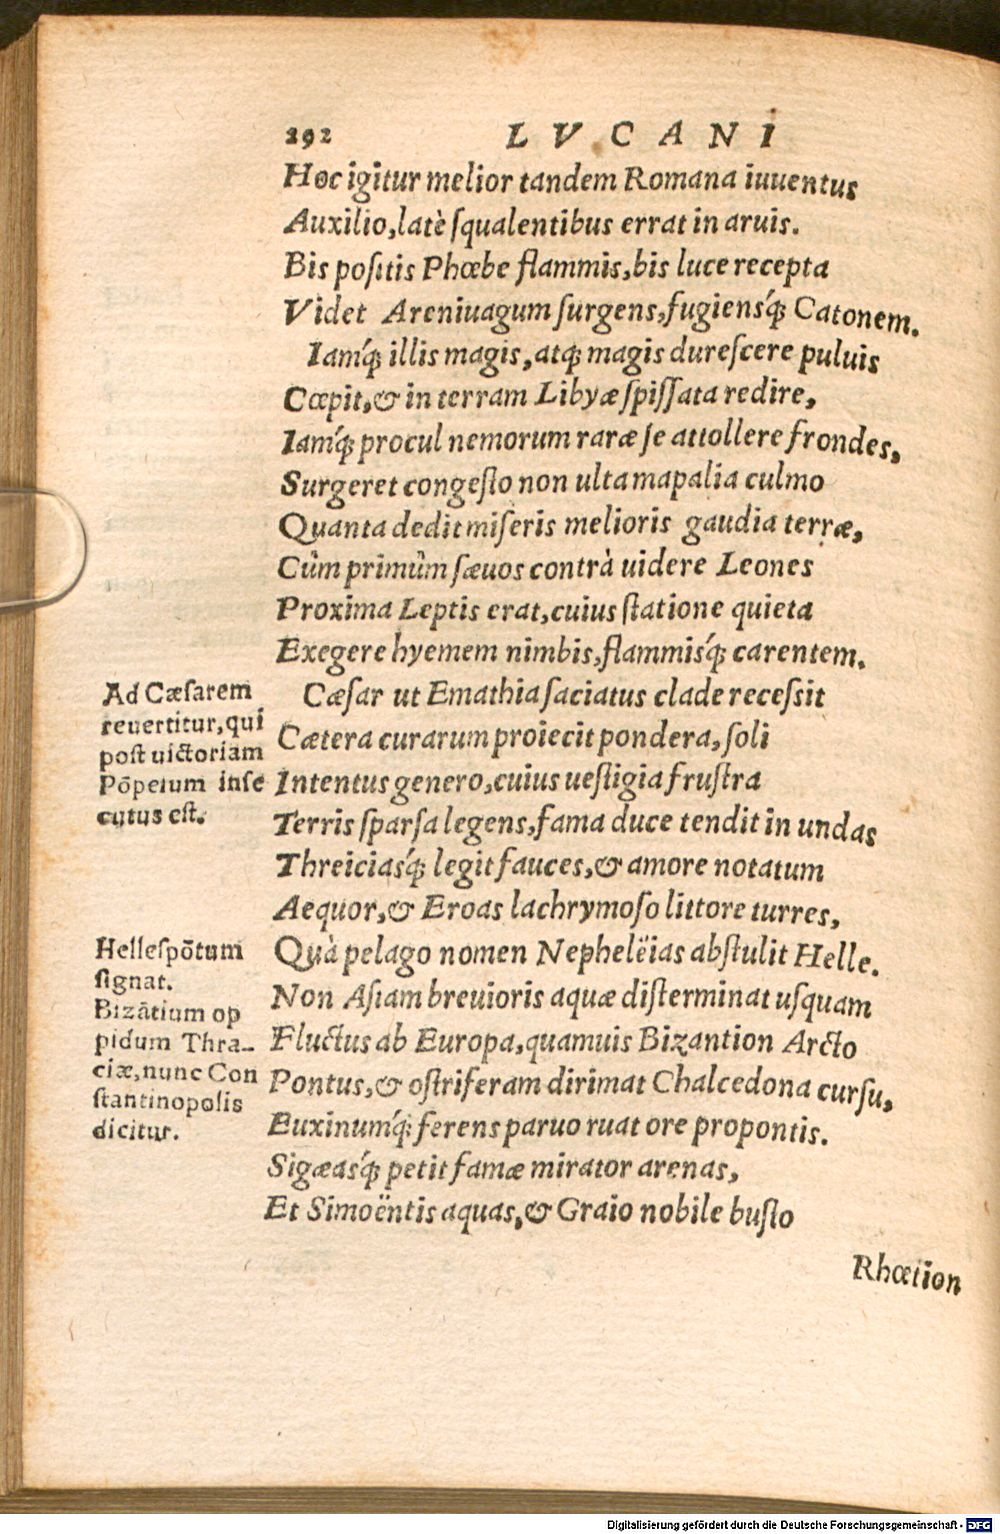 292 LVCANI
Hoc igitur melior tandem Romana iuuentus
Auxilio, latè ſqualentibus errat in aruis.
Bis poſitis Phœbe flammis, bis luce recepta
Videt Areniuagum ſurgens, fugiensq́; Catonem.
Iamq́; illis magis, atq; magis dureſcere puluis
Cœpit, & in terram Libyæ ſpiſſata redire,
Iamq́; procul nemorum raræ ſe attollere frondes,
Surgeret congeſto non ulta mapalia culmo
Quanta dedit miſeris melioris gaudia terræ,
Cùm primùm ſæuos contrà uidere Leones
Proxima Leptis erat, cuius ſtatione quieta
Exegere hyemem nimbis, flammisq́; carentem.
Ad Cæſarem
reuertitur, qui
poſt uictoriam
Põpeium inſe
cutus eſt.
Cæſar ut Emathia ſaciatus clade receſsit
Cætera curarum proiecit pondera, ſoli
Intentus genero, cuius ueſtigia fruſtra
Terris ſparſa legens, fama duce tendit in undas
Threiciasq́; legit fauces, & amore notatum
Aequor, & Eroas lachrymoſo littore turres,
Helleſpõtum
ſignat.
Bizãtium op
pidum Thra-
ciæ, nunc Con
ſtantinopolis
dicitur.
Quà pelago nomen Nephelëias abſtulit Helle.
Non Aſiam breuioris aquæ diſterminat uſquam
Fluctus ab Europa, quamuis Bizantion Arcto
Pontus, & oſtriferam dirimat Chalcedona curſu,
Euxinumq́; ferens paruo ruat ore propontis.
Sigæasq́; petit famæ mirator arenas,
Et Simoëntis aquas, & Graio nobile buſto
Rhœtion
Digitalisierung gefördert durch die Deutsche Forschungsgemeinschaft - DFG